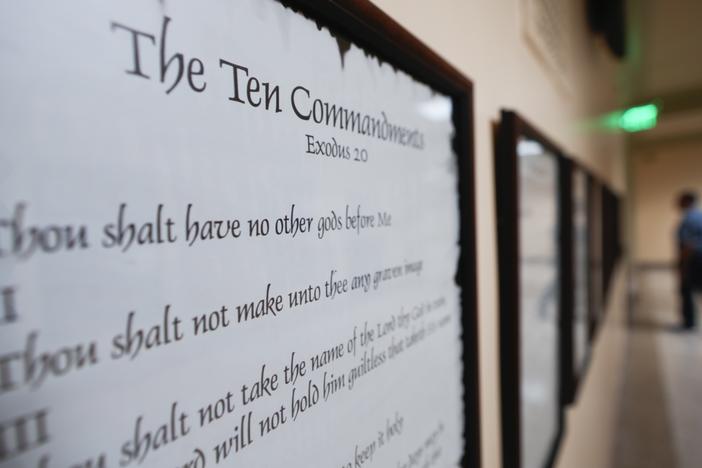 The Ten Commandments
Exodus 20
Thou shalt have no other gods before Me
II
Thou shalt not make unto thee any graven image
III
shalt not take the name of the Lord thy God in vain
will not hold him guiltless that taketh His name
keep it holy